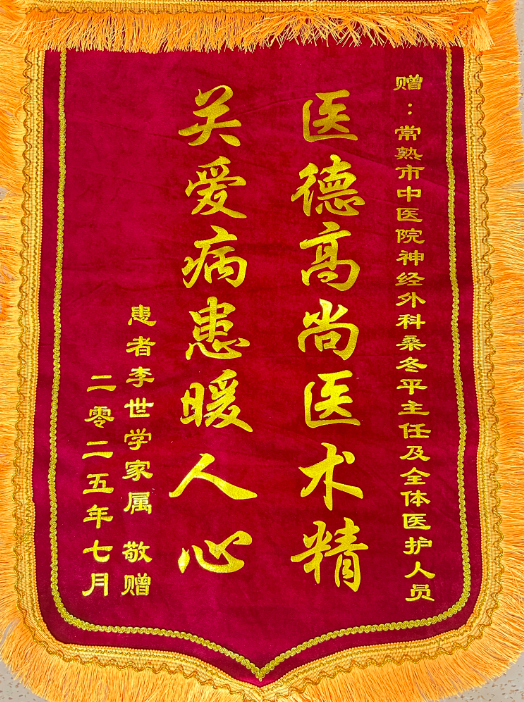 赠：常熟市中医院神经外科桑冬平主任及全体医护人员
医德高尚医术精
关爱病患暖人心
患者李世学家属 敬赠
二零二五年七月